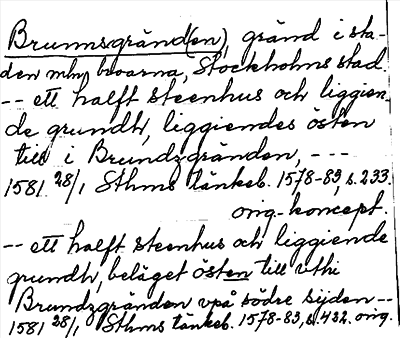 Brunnsgränd(en), gränd i sta-
den mln broarna, Stockholms stad.
-- ett halft steenhus och liggien-
de grundh, liggiendes östen
till i Brundzgränden, ---
1581 28/1 Sthms tänkeb. 1578-83, s. 233.
orig.-koncept.
-- ett halft steenhus och liggiende
grundh, beläget östen till uthi
Brundzgränden vpå södre sijden --
1581 28/1, Sthms tänkeb. 1578-83, s. 432. orig.